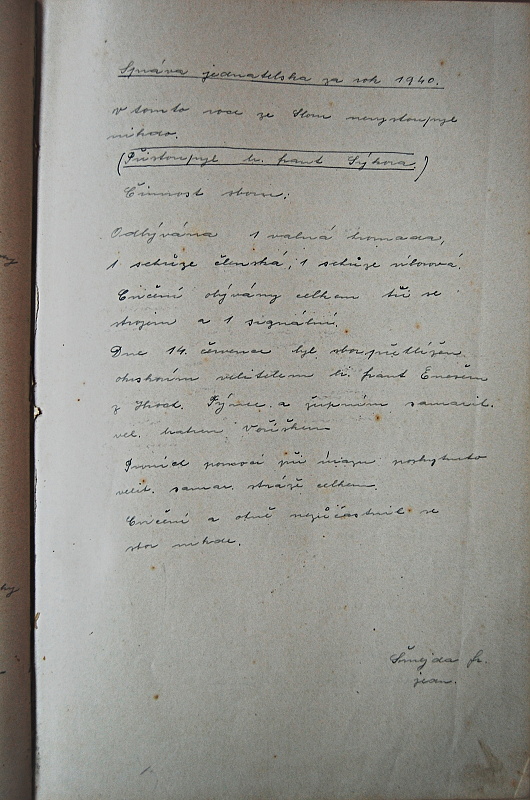 Správa jednatelska za rok 1940.
V tomto roce ze sboru nevystoupil
nikdo.
(Přistoupil br. Frant Sýkora)
Činnost sboru:
Odbývána 1 valná hromada,
1 schůze členská, 1 schůze výborová,
Cvičení obývány celkem tři se
strojem a 1 signální.
Dne 14. července byl sbor přehlížen
okrskovým velitelem br. Frant
z Hrad. Týnce a župním samarit.
vel. bratrem
První pomoci při úrazu poskytnuto
velit. samar. stráže celkem.
Cvičení a ohně nezúčastnil se
sbor nikde.
Šmejda Fr.
jedn.